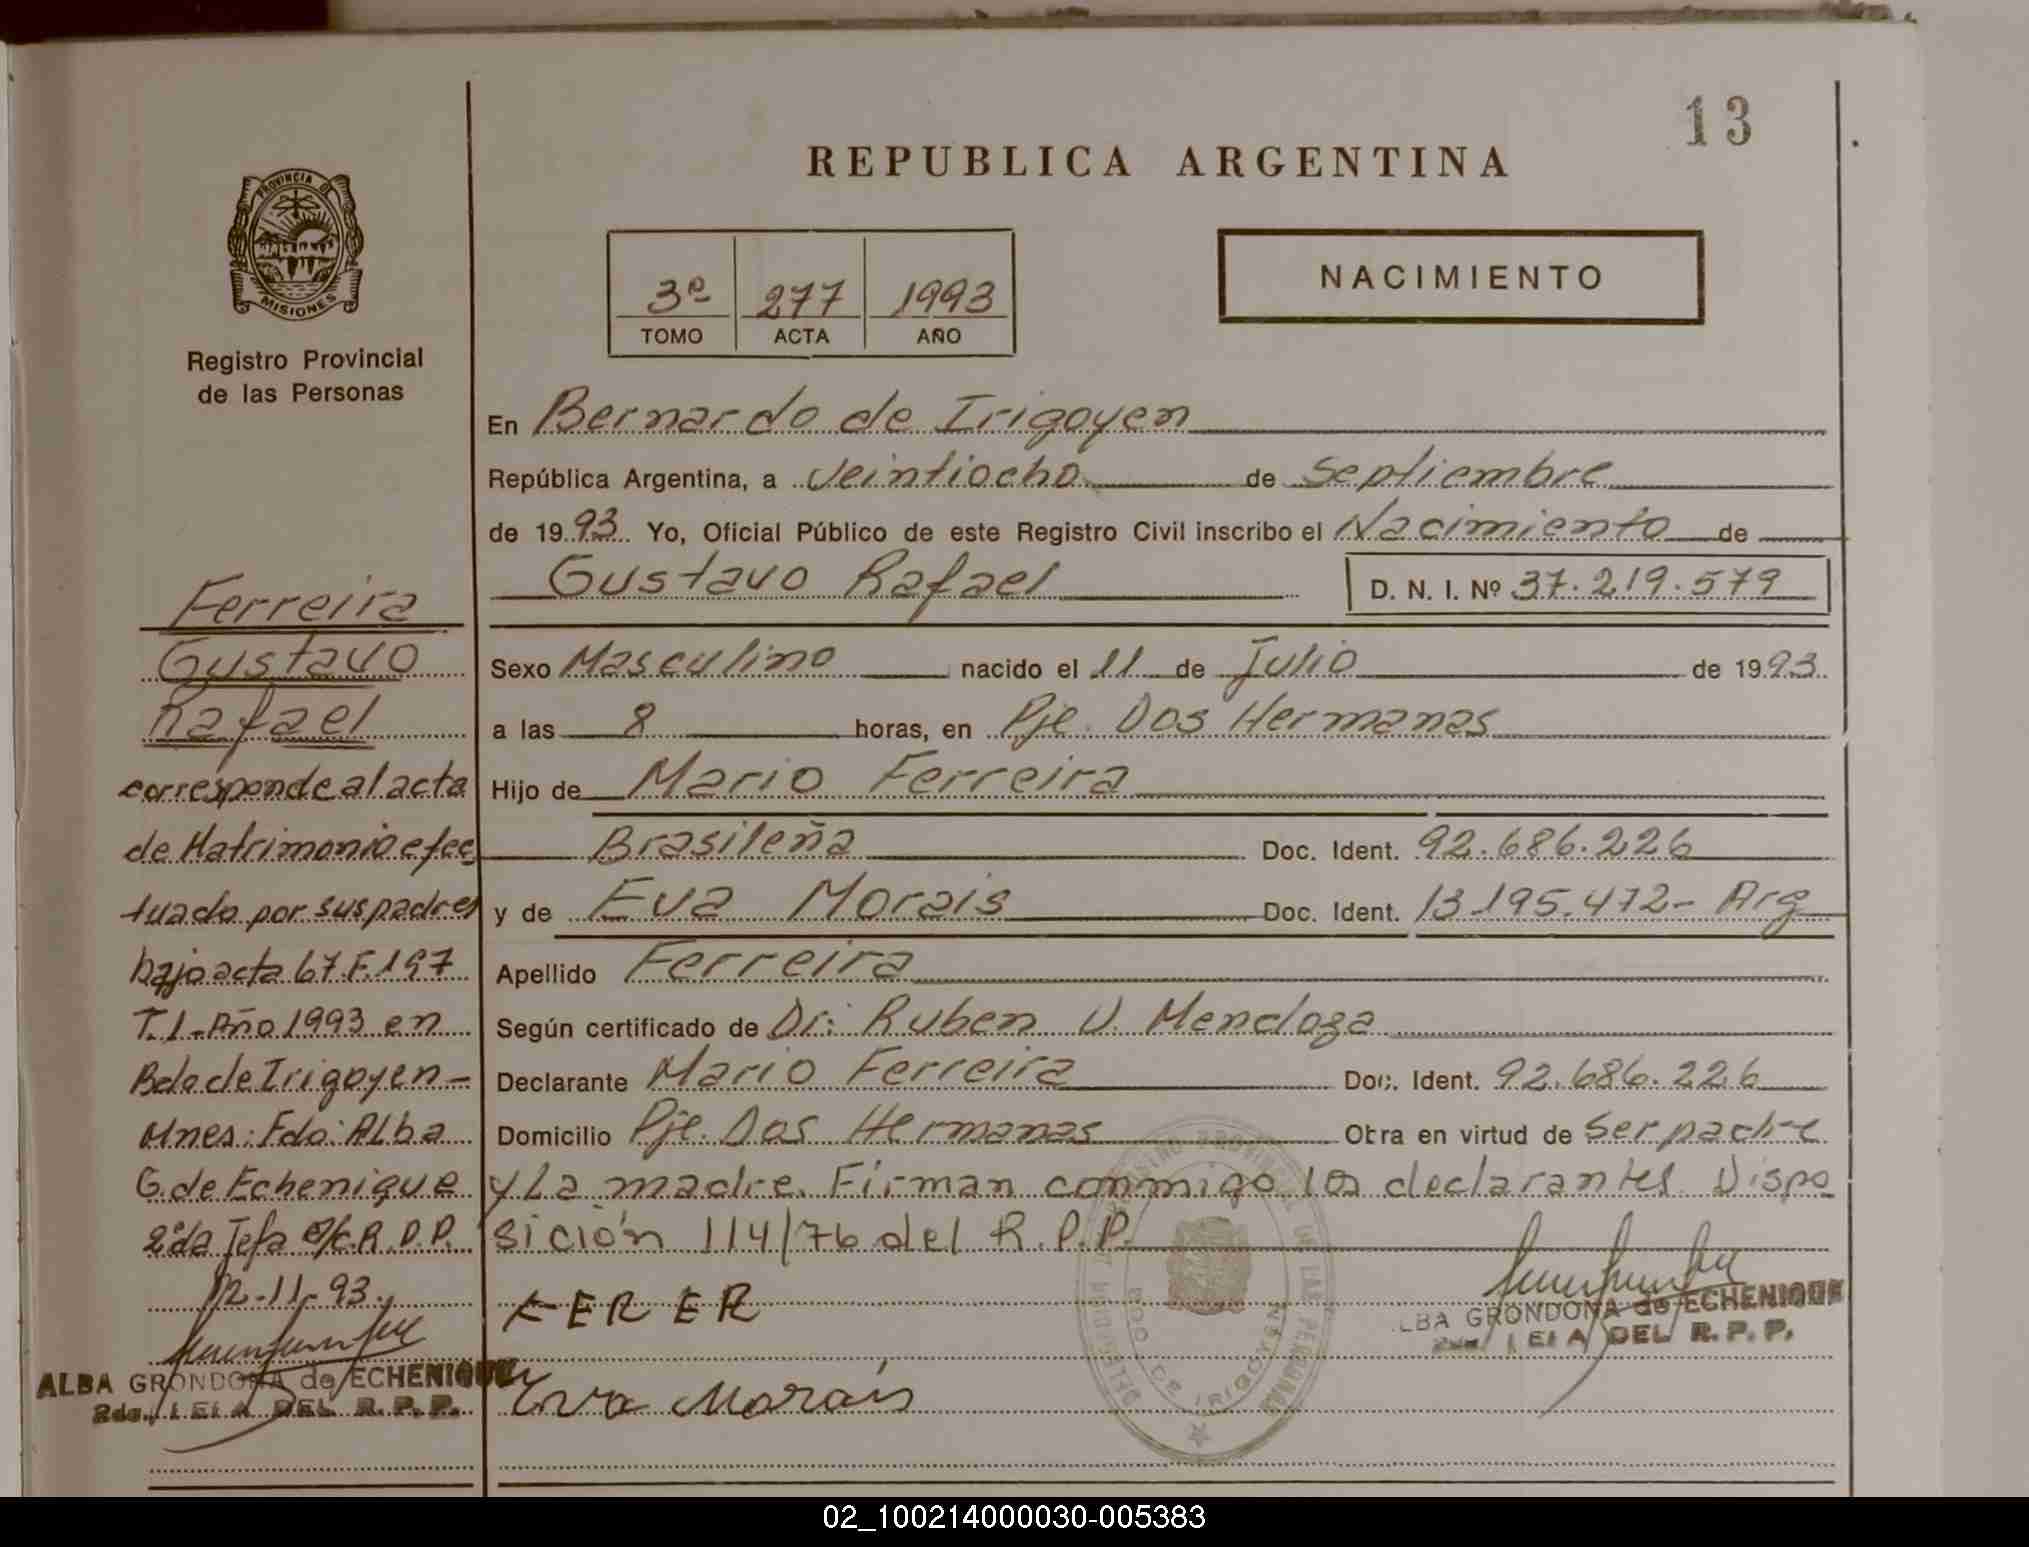 13
REPUBLICA ARGENTINA
PROVINCIA DE
MISIONES
Registro Provincial
de las Personas
3º 277 1993
TOMO ACTA AÑO
NACIMIENTO
En Bernardo de Irigoyen
República Argentina, a Veintiocho de Septiembre
de 1993 Yo, Oficial Público de este Registro Civil inscribo el Nacimiento de
Gustavo Rafael D. N. I. Nº 37.219.579
Sexo Masculino nacido el 11 de Julio de 1993
a las 8 horas, en Pje. Dos Hermanas
Hijo de Mario Ferreira
Brasileña Doc. Ident. 92.686.226
y de Eva Morais Doc. Ident. 13.195.472- Arg
Apellido Ferreira
Según certificado de Dr: Ruben V. Mendoza
Declarante Mario Ferreira Doc. Ident. 92.686.226
Domicilio Pje. Dos Hermanas Obra en virtud de Ser padre
y La madre. Firman conmigo los declarantes. Dispo
sición 114/76 del R.P.P.
FERER
Eva Morais
ALBA GRONDONA de ECHENIQUE
2da. JEFA DEL R. P. P.
Ferreira
Gustavo
Rafael
corresponde al acta
de Matrimonio efec
tuado por sus padres
bajo acta 67 F. 197
T. 1 - Año 1993 en
Bdo de Irigoyen -
Mnes: Fdo: Alba
G. de Echenique
2da Jefa a/c. R.P.P.
12-11-93.
ALBA GRONDONA de ECHENIQUE
2da. JEFA DEL R. P. P.
02_100214000030-005383